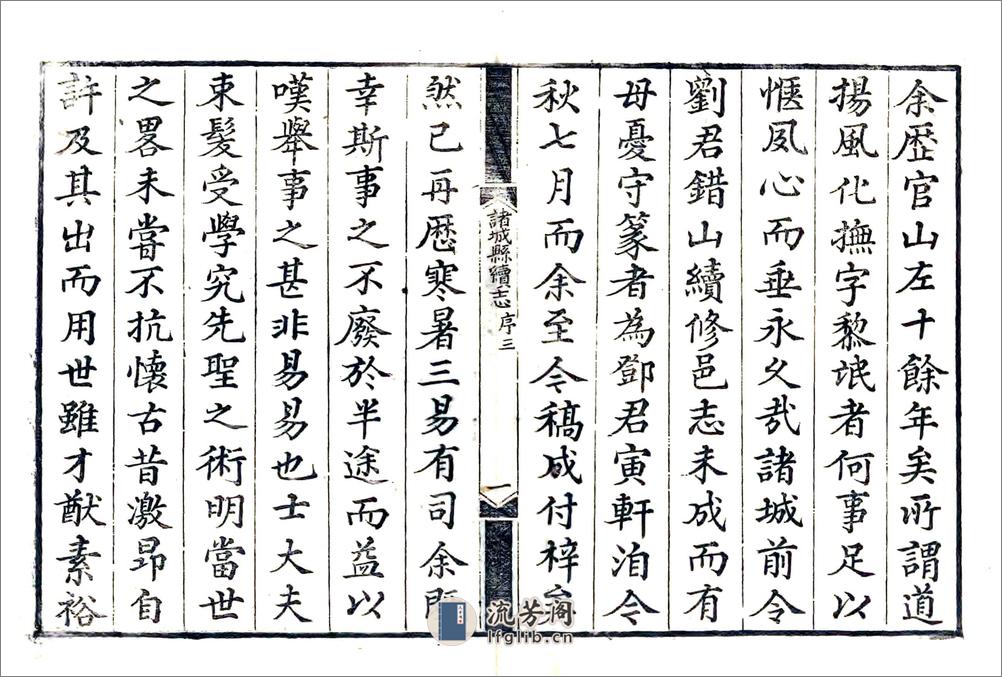 余歴官山左十餘年矣所謂道
揚風化撫字黎氓者何事足以
愜夙心而垂永久哉諸城前令
劉君錯山續修邑志未成而有
母憂守篆者為鄧君寅軒洎今
秋七月而余至今稿成付梓
諸城縣續志 序三
一
然已再歴寒暑三易有司余
幸斯事之不廢於半途而益以
嘆舉事之甚非易易也士大夫
束髮受學究先聖之術明當世
之畧未嘗不抗懷古昔激昂自
許及其出而用世雖才猷素裕
流芳阁
lfglib.cn